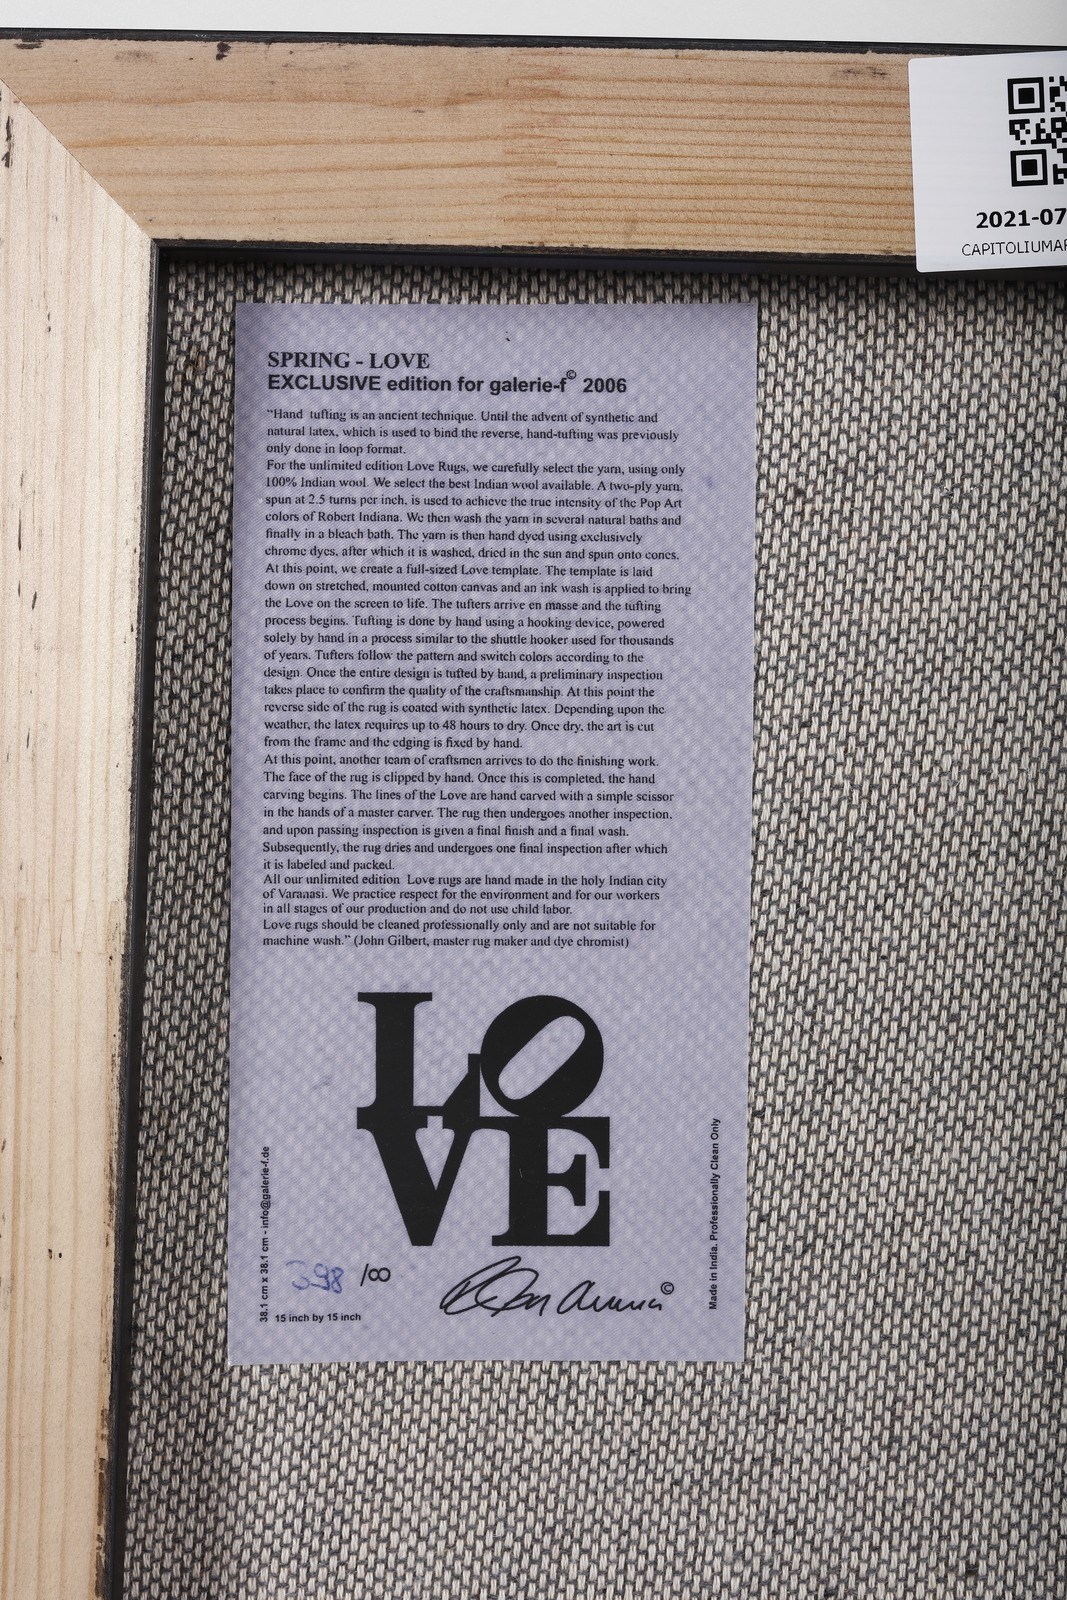 2021-07
CAPITOLIUMAR
SPRING - LOVE
EXCLUSIVE edition for galerie-f© 2006
"Hand tufting is an ancient technique. Until the advent of synthetic and
natural latex, which is used to bind the reverse, hand-tufting was previously
only done in loop format.
For the unlimited edition Love Rugs, we carefully select the yarn, using only
100% Indian wool. We select the best Indian wool available. A two-ply yarn,
spun at 2.5 turns per inch, is used to achieve the true intensity of the Pop Art
colors of Robert Indiana. We then wash the yarn in several natural baths and
finally in a bleach bath. The yarn is then hand dyed using exclusively
chrome dyes, after which it is washed, dried in the sun and spun onto cones.
At this point, we create a full-sized Love template. The template is laid
down on stretched, mounted cotton canvas and an ink wash is applied to bring
the Love on the screen to life. The tufters arrive en masse and the tufting
process begins. Tufting is done by hand using a hooking device, powered
solely by hand in a process similar to the shuttle hooker used for thousands
of years. Tufters follow the pattern and switch colors according to the
design. Once the entire design is tufted by hand, a preliminary inspection
takes place to confirm the quality of the craftsmanship. At this point the
reverse side of the rug is coated with synthetic latex. Depending upon the
weather, the latex requires up to 48 hours to dry. Once dry, the art is cut
from the frame and the edging is fixed by hand.
At this point, another team of craftsmen arrives to do the finishing work.
The face of the rug is clipped by hand. Once this is completed, the hand
carving begins. The lines of the Love are hand carved with a simple scissor
in the hands of a master carver. The rug then undergoes another inspection,
and upon passing inspection is given a final finish and a final wash.
Subsequently, the rug dries and undergoes one final inspection after which
it is labeled and packed.
All our unlimited edition Love rugs are hand made in the holy Indian city
of Varanasi. We practice respect for the environment and for our workers
in all stages of our production and do not use child labor.
Love rugs should be cleaned professionally only and are not suitable for
machine wash." (John Gilbert, master rug maker and dye chromist)
LO
VE
398 /∞
©
38.1 cm x 38.1 cm - info@galerie-f.de
15 inch by 15 inch
Made in India. Professionally Clean Only